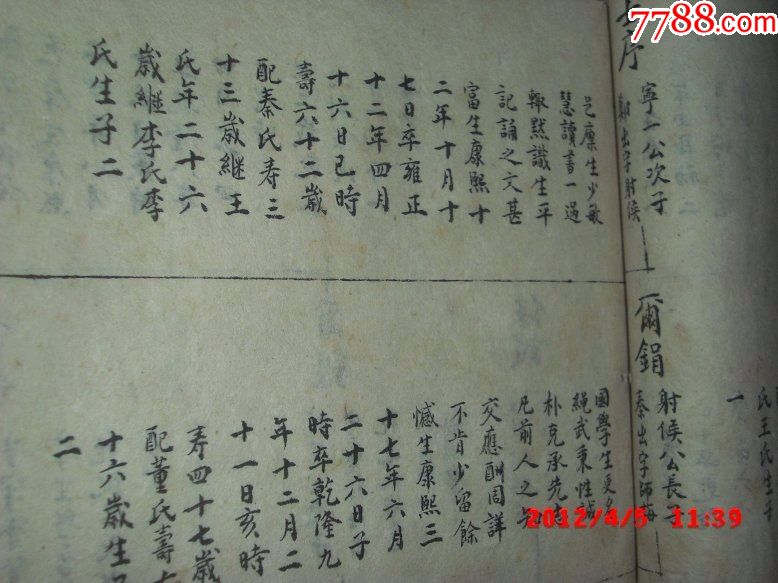 7788.com
士序
寧一公次子
鄭出字射侯
邑廪生少敏
慧讀書一過
輒默識生平
記誦之文甚
富生康熙十
二年十月十
七日卒雍正
十二年四月
十六日巳時
壽六十二歲
配秦氏寿三
十三歲継王
氏年二十六
歲継李氏李
氏生子二
爾鋗
射侯公長子
秦出字師
國學生
繩武秉性誠
朴克承先
凡前人之
交應酬周詳
不肯少留餘
憾生康熙三
十七年六月
二十六日子
時卒乾隆九
年十二月二
十一日亥時
寿四十七歲
配董氏壽
十六歲生子
二
氏王氏生子
一
2012/4/5 11:39